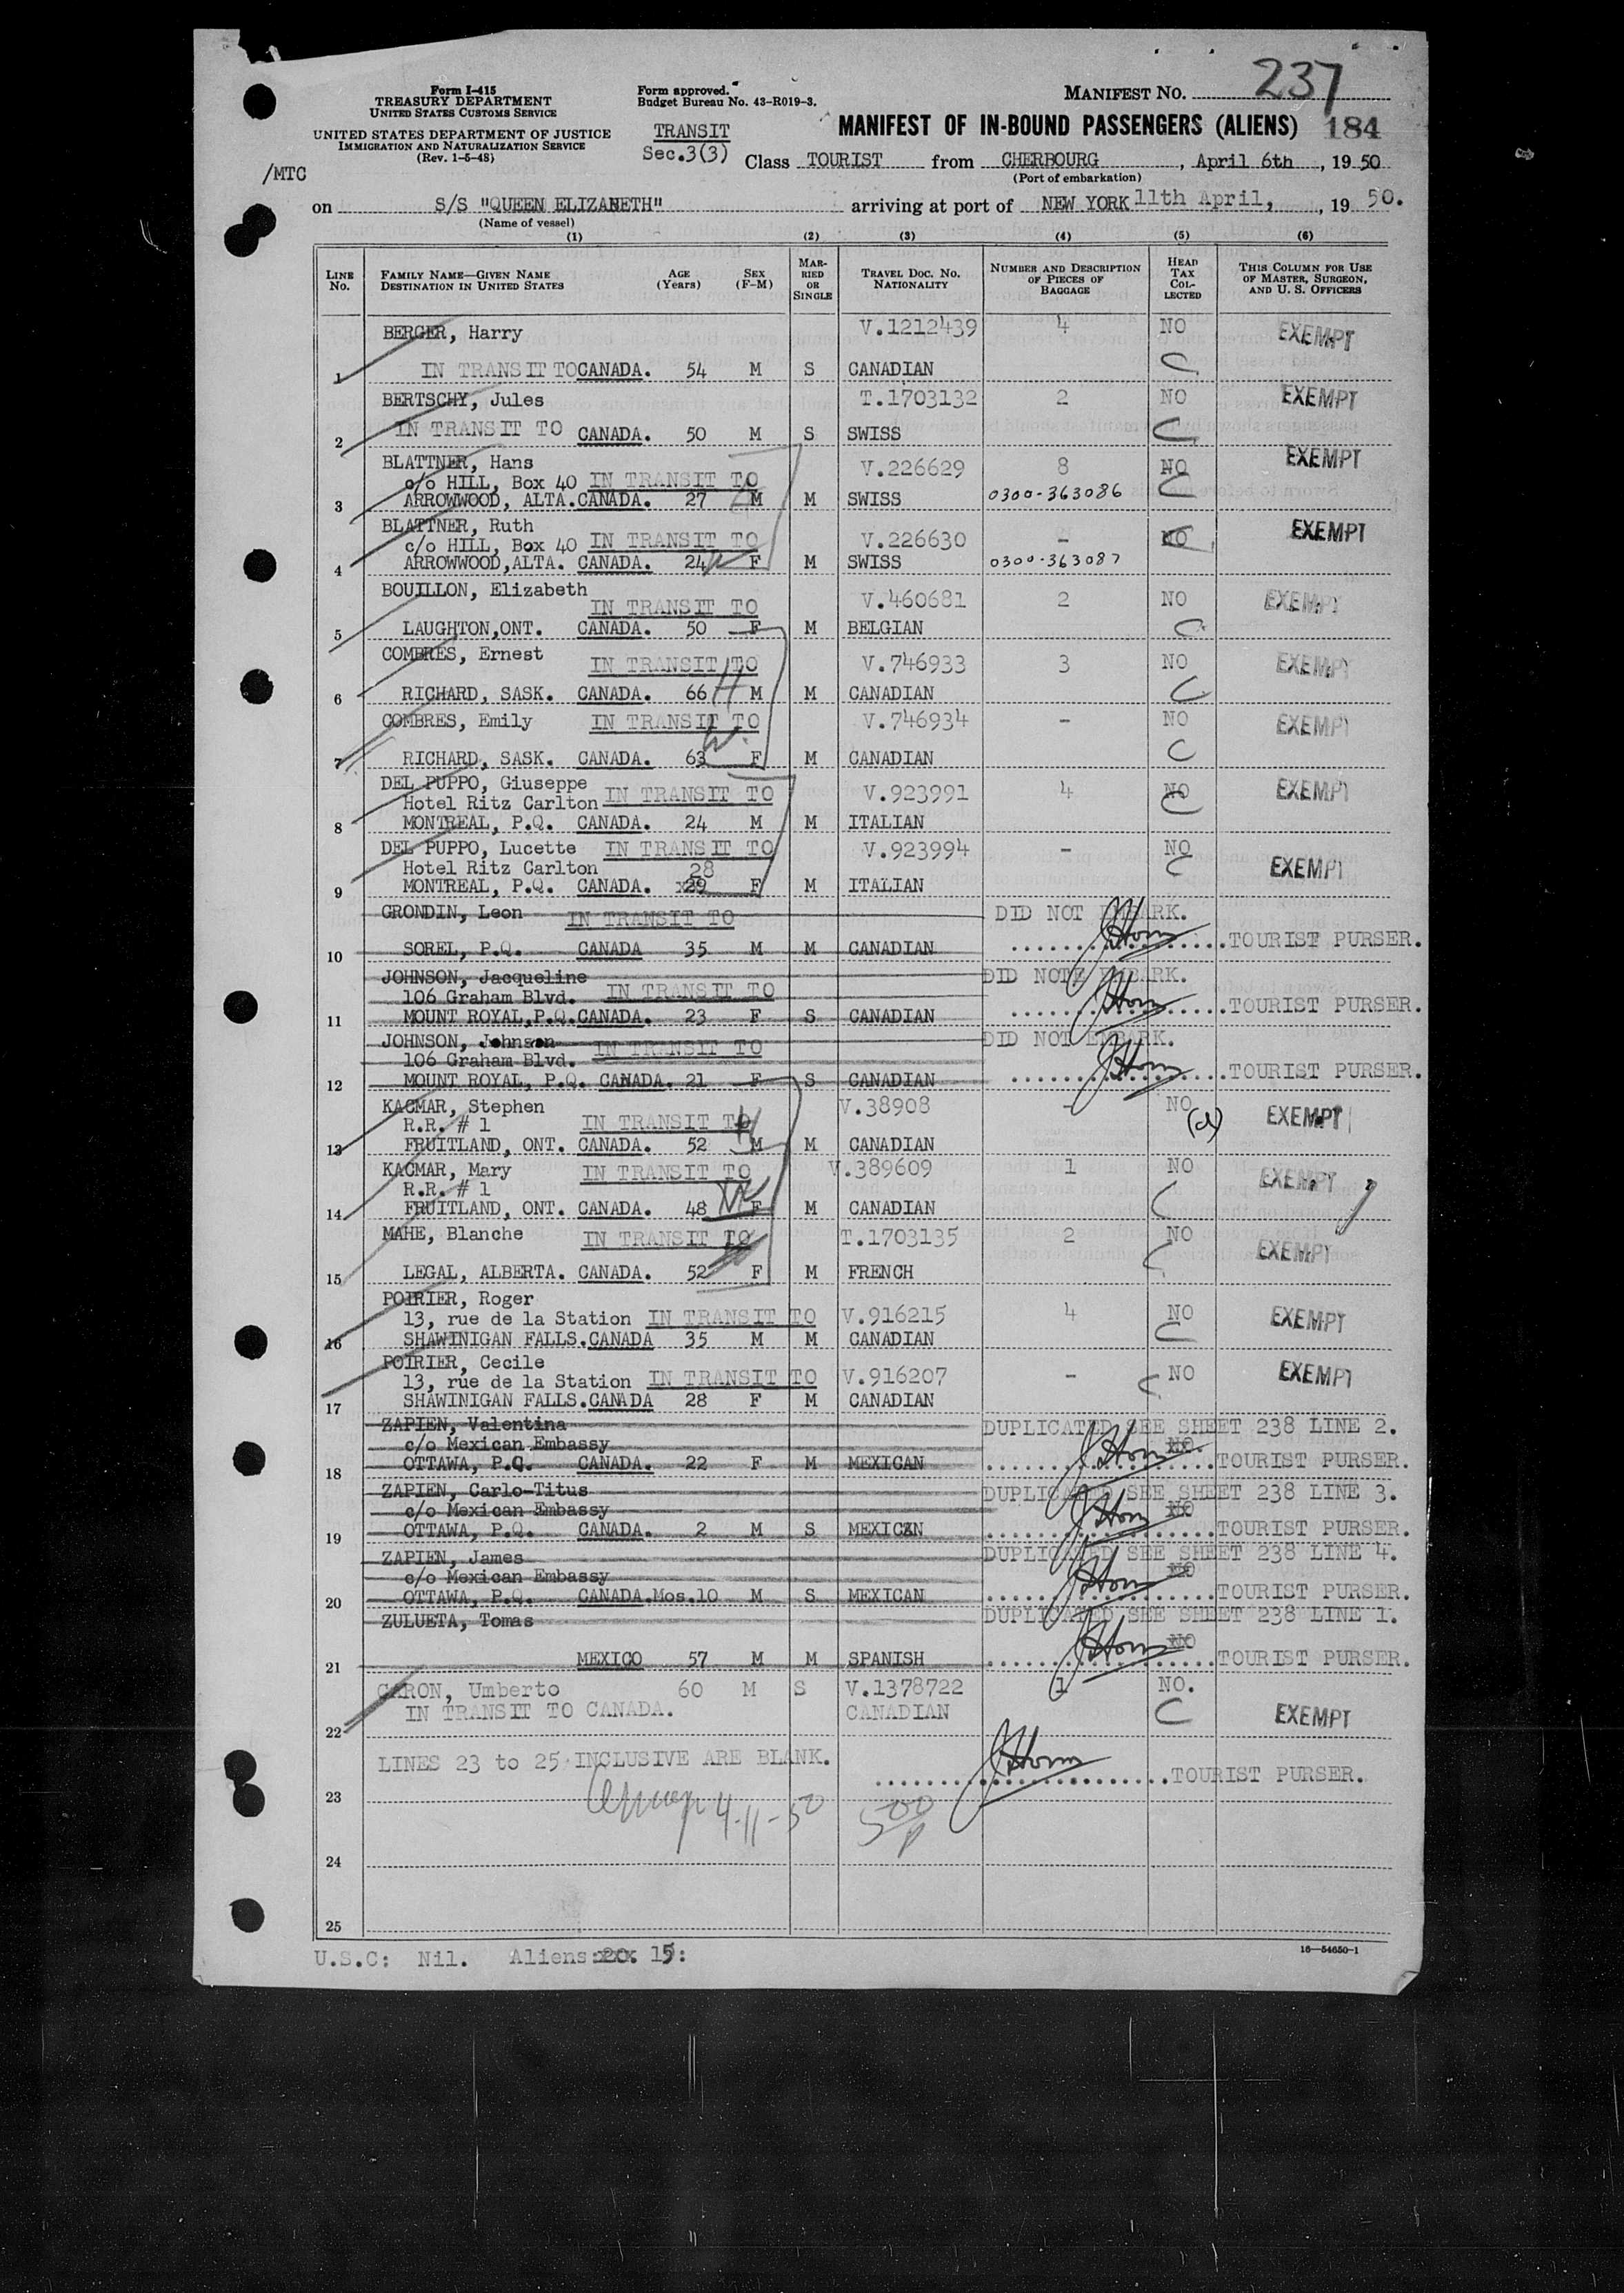 Form I-415
TREASURY DEPARTMENT
UNITED STATES CUSTOMS SERVICE
UNITED STATES DEPARTMENT OF JUSTICE
IMMIGRATION AND NATURALIZATION SERVICE
(Rev. 1-5-48)
/MTC
Form approved.
Budget Bureau No. 43-R019-3.
TRANSIT
Sec.3(3)
MANIFEST NO. 237
MANIFEST OF IN-BOUND PASSENGERS (ALIENS) 184
Class TOURIST from CHERBOURG, April 6th, 19 50
(Port of embarkation)
on S/S "QUEEN ELIZABETH" arriving at port of NEW YORK 11th April, , 19 50.
(Name of vessel)
(1) (2) (3) (4) (5) (6)
LINE NO. FAMILY NAME—GIVEN NAME DESTINATION IN UNITED STATES AGE (Years) SEX (F-M) MARRIED OR SINGLE TRAVEL DOC. NO. NATIONALITY NUMBER AND DESCRIPTION OF PIECES OF BAGGAGE HEAD TAX COLLECTED THIS COLUMN FOR USE OF MASTER, SURGEON, AND U. S. OFFICERS
BERGER, Harry V.1212439 4 NO EXEMPT
1 IN TRANSIT TO CANADA. 54 M S CANADIAN C
BERTSCHY, Jules T.1703132 2 NO EXEMPT
2 IN TRANSIT TO CANADA. 50 M S SWISS C
BLATTNER, Hans V.226629 8 NO EXEMPT
c/o HILL, Box 40 IN TRANSIT TO C
3 ARROWWOOD, ALTA. CANADA. 27 M M SWISS 0300-363086
BLATTNER, Ruth V.226630 - NO EXEMPT
c/o HILL, Box 40 IN TRANSIT TO
4 ARROWWOOD, ALTA. CANADA. 24 W F M SWISS 0300-363087
BOUILLON, Elizabeth V.460681 2 NO EXEMPT
IN TRANSIT TO
5 LAUGHTON, ONT. CANADA. 50 F M BELGIAN C
COMBRES, Ernest V.746933 3 NO EXEMPT
IN TRANSIT TO
6 RICHARD, SASK. CANADA. 66 H M M CANADIAN C
COMBRES, Emily IN TRANSIT TO V.746934 - NO EXEMPT
7 RICHARD, SASK. CANADA. 63 W. F M CANADIAN C
DEL PUPPO, Giuseppe V.923991 4 NO EXEMPT
Hotel Ritz Carlton IN TRANSIT TO C
8 MONTREAL, P.Q. CANADA. 24 M M ITALIAN
DEL PUPPO, Lucette IN TRANSIT TO V.923994 - NO EXEMPT
Hotel Ritz Carlton 28 C
9 MONTREAL, P.Q. CANADA. x29 F M ITALIAN
GRONDIN, Leon IN TRANSIT TO DID NOT EMBARK.
10 SOREL, P.Q. CANADA 35 M M CANADIAN TOURIST PURSER.
JOHNSON, Jacqueline DID NOTE EMBARK.
106 Graham Blvd. IN TRANSIT TO TOURIST PURSER.
11 MOUNT ROYAL, P.Q. CANADA. 23 F S CANADIAN
JOHNSON, Johnson IN TRANSIT TO DID NOT EMBARK.
106 Graham Blvd.
12 MOUNT ROYAL, P.Q. CANADA. 21 F S CANADIAN TOURIST PURSER.
KACMAR, Stephen V.38908 - NO EXEMPT
R.R. # 1 IN TRANSIT TO (d)
13 FRUITLAND, ONT. CANADA. 52 H M M CANADIAN
KACMAR, Mary IN TRANSIT TO V.389609 1 NO EXEMPT
R.R. # 1
14 FRUITLAND, ONT. CANADA. 48 W F M CANADIAN C
MAHE, Blanche IN TRANSIT TO T.1703135 2 NO EXEMPT
15 LEGAL, ALBERTA. CANADA. 52 F M FRENCH C
POIRIER, Roger V.916215 4 NO EXEMPT
13, rue de la Station IN TRANSIT TO C
16 SHAWINIGAN FALLS. CANADA 35 M M CANADIAN
POIRIER, Cecile V.916207 - NO EXEMPT
13, rue de la Station IN TRANSIT TO C
17 SHAWINIGAN FALLS. CANADA 28 F M CANADIAN
ZAPIEN, Valentina DUPLICATED SEE SHEET 238 LINE 2.
c/o Mexican Embassy NO.
18 OTTAWA, P.Q. CANADA. 22 F M MEXICAN TOURIST PURSER.
ZAPIEN, Carlo-Titus DUPLICATED SEE SHEET 238 LINE 3.
c/o Mexican Embassy NO
19 OTTAWA, P.Q. CANADA. 2 M S MEXICAN TOURIST PURSER.
ZAPIEN, James DUPLICATED SEE SHEET 238 LINE 4.
c/o Mexican Embassy NO
20 OTTAWA, P.Q. CANADA. Mos.10 M S MEXICAN TOURIST PURSER.
ZULUETA, Tomas DUPLICATED SEE SHEET 238 LINE 1.
NO
21 MEXICO 57 M M SPANISH TOURIST PURSER.
CARON, Umberto 60 M S V.1378722 1 NO.
22 IN TRANSIT TO CANADA. CANADIAN C EXEMPT
LINES 23 to 25 INCLUSIVE ARE BLANK.
23 TOURIST PURSER.
4-11-50 500
24
25
U.S.C: Nil. Aliens: 20. 15:
16—54650-1